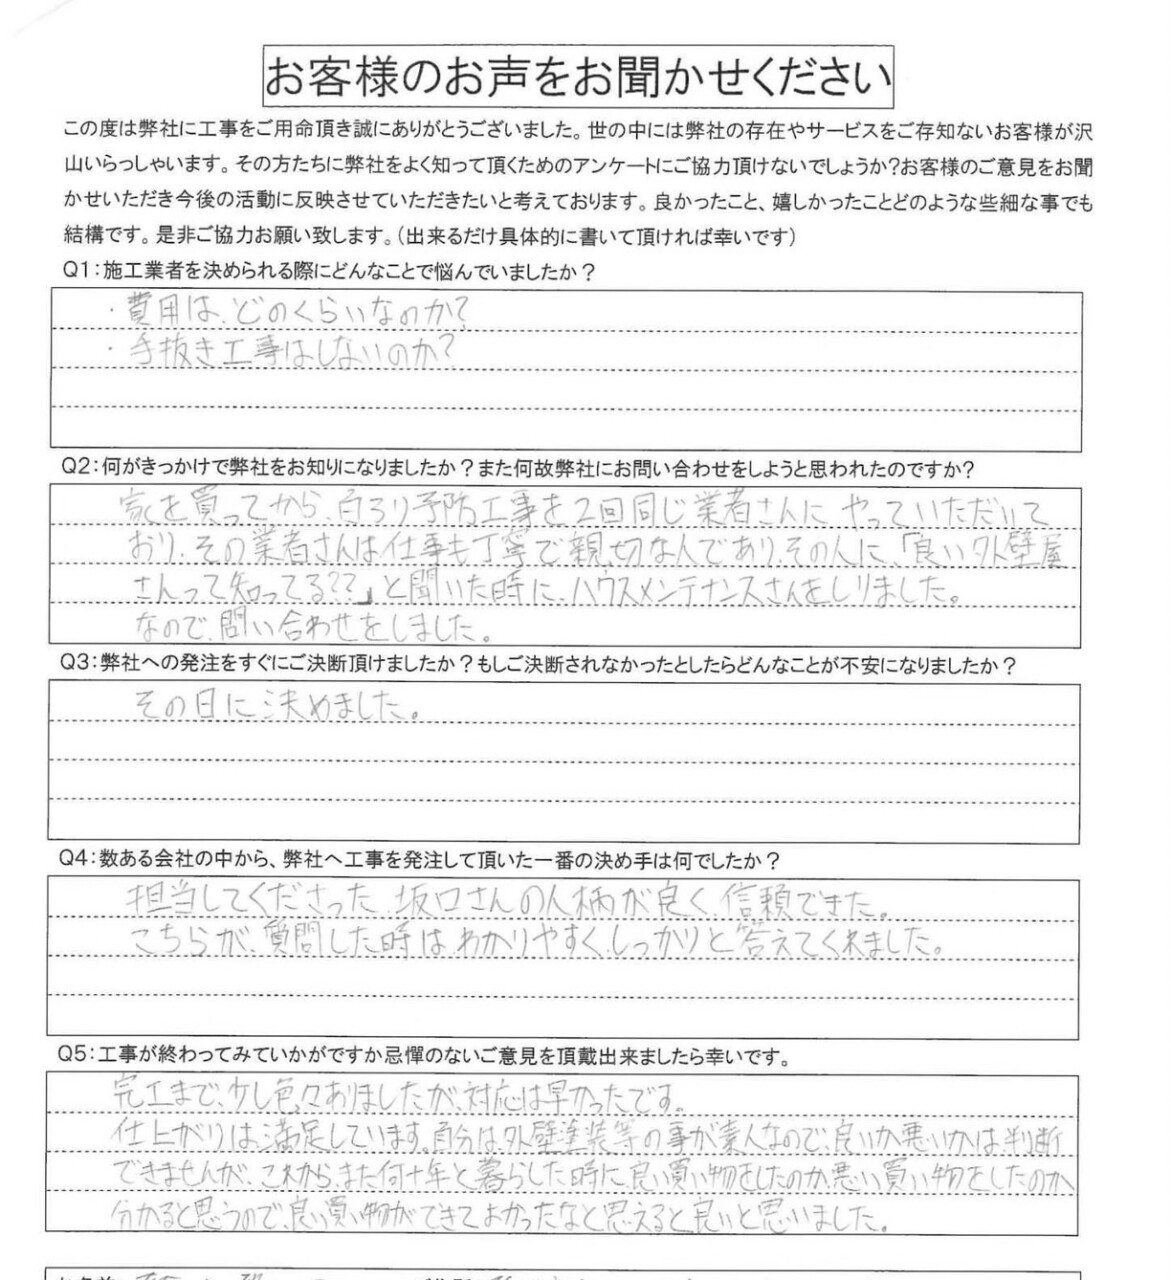 お客様のお声をお聞かせください
この度は弊社に工事をご用命頂き誠にありがとうございました。世の中には弊社の存在やサービスをご存知ないお客様が沢
山いらっしゃいます。その方たちに弊社をよく知って頂くためのアンケートにご協力頂けないでしょうか?お客様のご意見をお聞
かせいただき今後の活動に反映させていただきたいと考えております。良かったこと、嬉しかったことどのような些細な事でも
結構です。是非ご協力お願い致します。（出来るだけ具体的に書いて頂ければ幸いです）
Q1:施工業者を決められる際にどんなことで悩んでいましたか？
・費用は、どのくらいなのか？
・手抜き工事はしないのか？
Q2:何がきっかけで弊社をお知りになりましたか？また何故弊社にお問い合わせをしようと思われたのですか?
家を買ってから、白ろり予防工事を2回同じ業者さんに やっていただいて
おり、その業者さんは仕事も丁寧で親切な人であり、その人に、「良い外壁屋
さんって知ってる??」と聞いた時に、ハウスメンテナンスさんをしりました。
なので、問い合わせをしました。
Q3:弊社への発注をすぐにご決断頂けましたか？もしご決断されなかったとしたらどんなことが不安になりましたか？
その日に決めました。
Q4:数ある会社の中から、弊社へ工事を発注して頂いた一番の決め手は何でしたか？
担当してくださった、坂口さんの人柄が良く、信頼できた。
こちらが、質問した時は、わかりやすく、しっかりと答えてくれました。
Q5:工事が終わってみていかがですか忌憚のないご意見を頂戴出来ましたら幸いです。
完工まで、少し色々ありましたが、対応は早かったです。
仕上がりは、満足しています。自分は、外壁塗装等の事が素人なので、良いか悪いかは、判断
できませんが、これから、また何十年と暮らした時に、良い買い物をしたのか、悪い買い物をしたのか、
分かると思うので、良い買い物ができてよかったなと思えると良いと思いました。